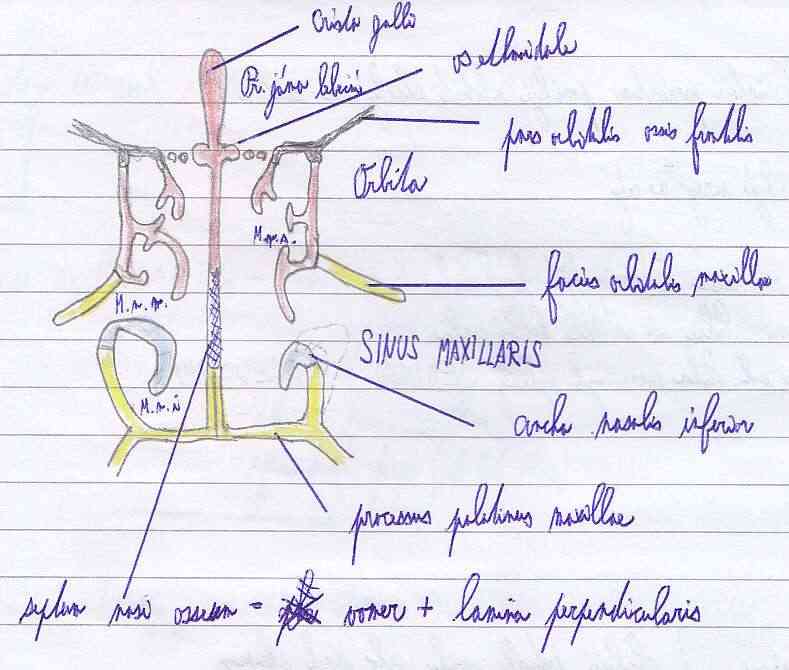 Crista galli
os ethmoidale
Př. jáma lebeční
pars orbitalis ossis frontalis
Orbita
M.n.s.
facies orbitalis maxillae
M.n.m.
SINUS MAXILLARIS
M.n.i
concha nasalis inferior
processus palatinus maxillae
septum nasi osseum = vomer + lamina perpendicularis